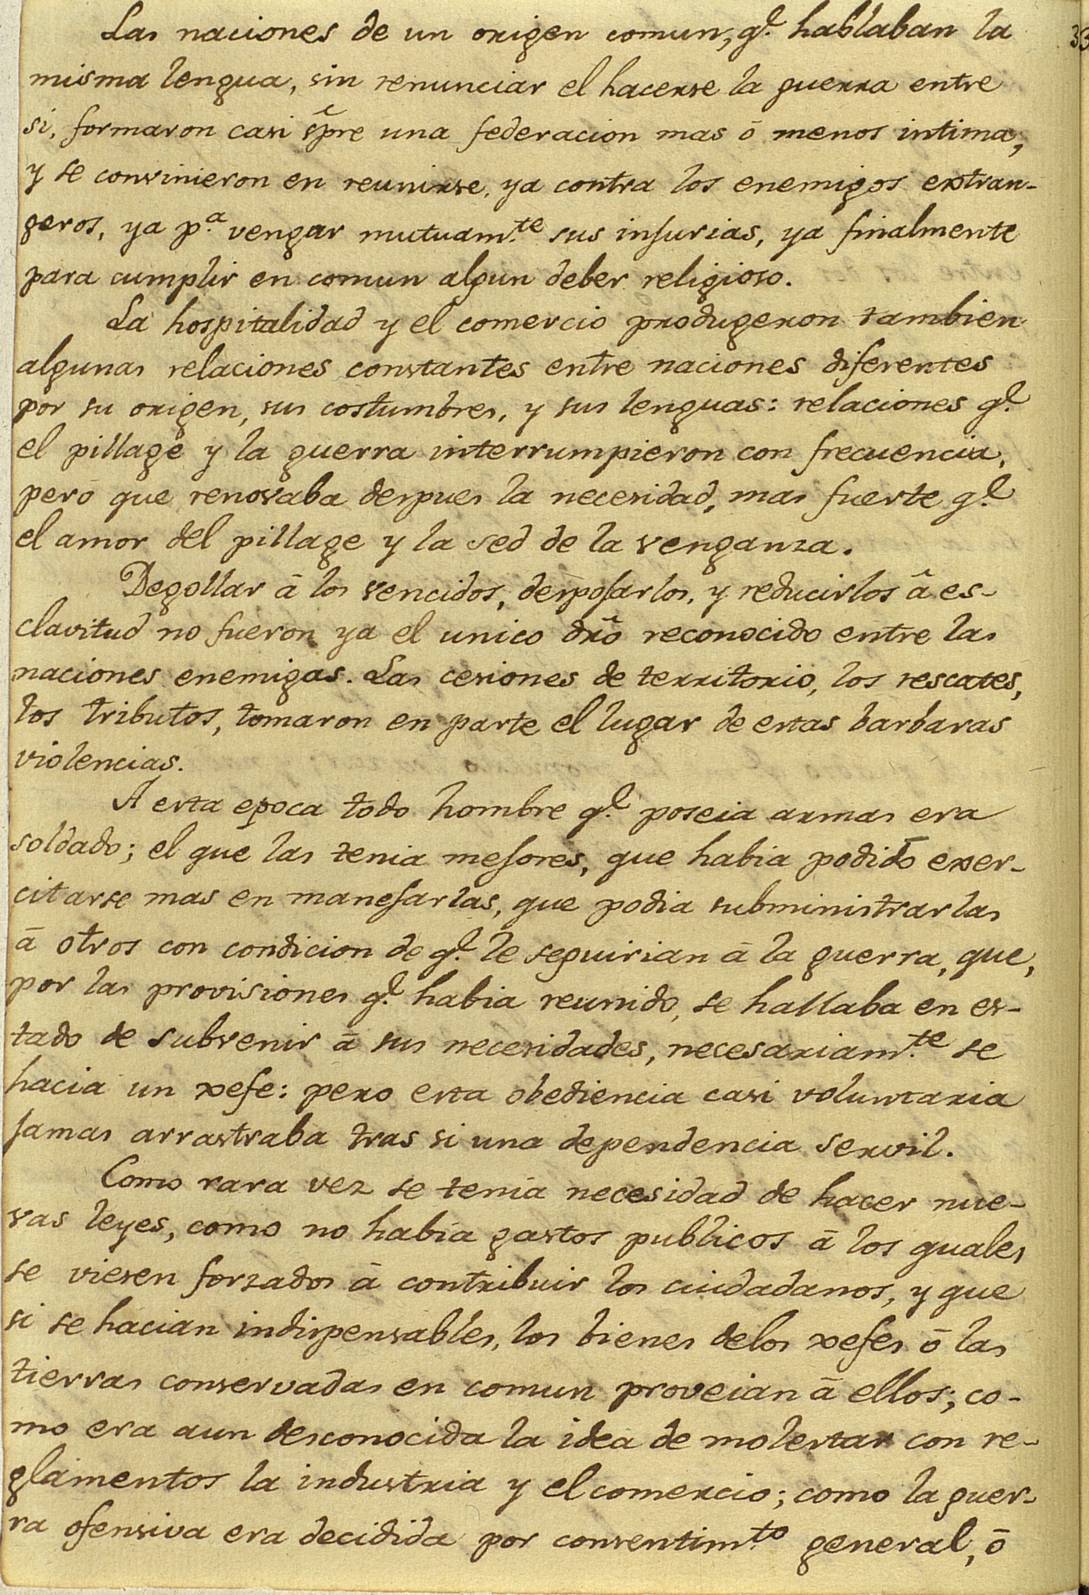 Las naciones de un origen comun, q.e hablaban la
33
misma lengua, sin renunciar el hacerse la guerra entre
si, formaron casi sp̃re una federacion mas ō menos intima,
y se convinieron en reunirse, ya contra los enemigos extran-
geros, ya p.a vengar mutuam.te sus injurias, ya finalmente
para cumplir en comun algun deber religioso.
La hospitalidad y el comercio produgeron tambien
algunas relaciones constantes entre naciones diferentes
por su origen, sus costumbres, y sus lenguas: relaciones q.e
el pillage y la guerra interrumpieron con frecuencia,
pero que renovaba despues la necesidad, mas fuerte q.e
el amor del pillage y la sed de la venganza.
Degollar ā los vencidos, despojarlos, y reducirlos â es-
clavitud no fueron ya el unico dr̃o reconocido entre las
naciones enemigas. Las cesiones de territorio, los rescates,
los tributos, tomaron en parte el lugar de estas barbaras
violencias.
A esta epoca todo hombre q.e poseia armas era
soldado; el que las tenia mejores, que habia podido exer-
citarse mas en manejarlas, que podia subministrarlas
ā otros con condicion de q.e le seguirian ā la guerra, que,
por las provisiones q.e habia reunido, se hallaba en es-
tado de subvenir ā sus necesidades, necesariam.te se
hacia un xefe: pero esta obediencia casi voluntaria
jamas arrastraba tras si una dependencia servil.
Como rara vez se tenia necesidad de hacer nue-
vas leyes, como no habia gastos publicos ā los quales
se viesen forzados ā contribuir los ciudadanos, y que
si se hacian indispensables, los bienes delos xefes ō las
tierras conservadas en comun proveian ā ellos; co-
mo era aun desconocida la idea de molestar con re-
glamentos la industria y el comercio; como la guer-
ra ofensiva era decidida por consentim.to general, ō